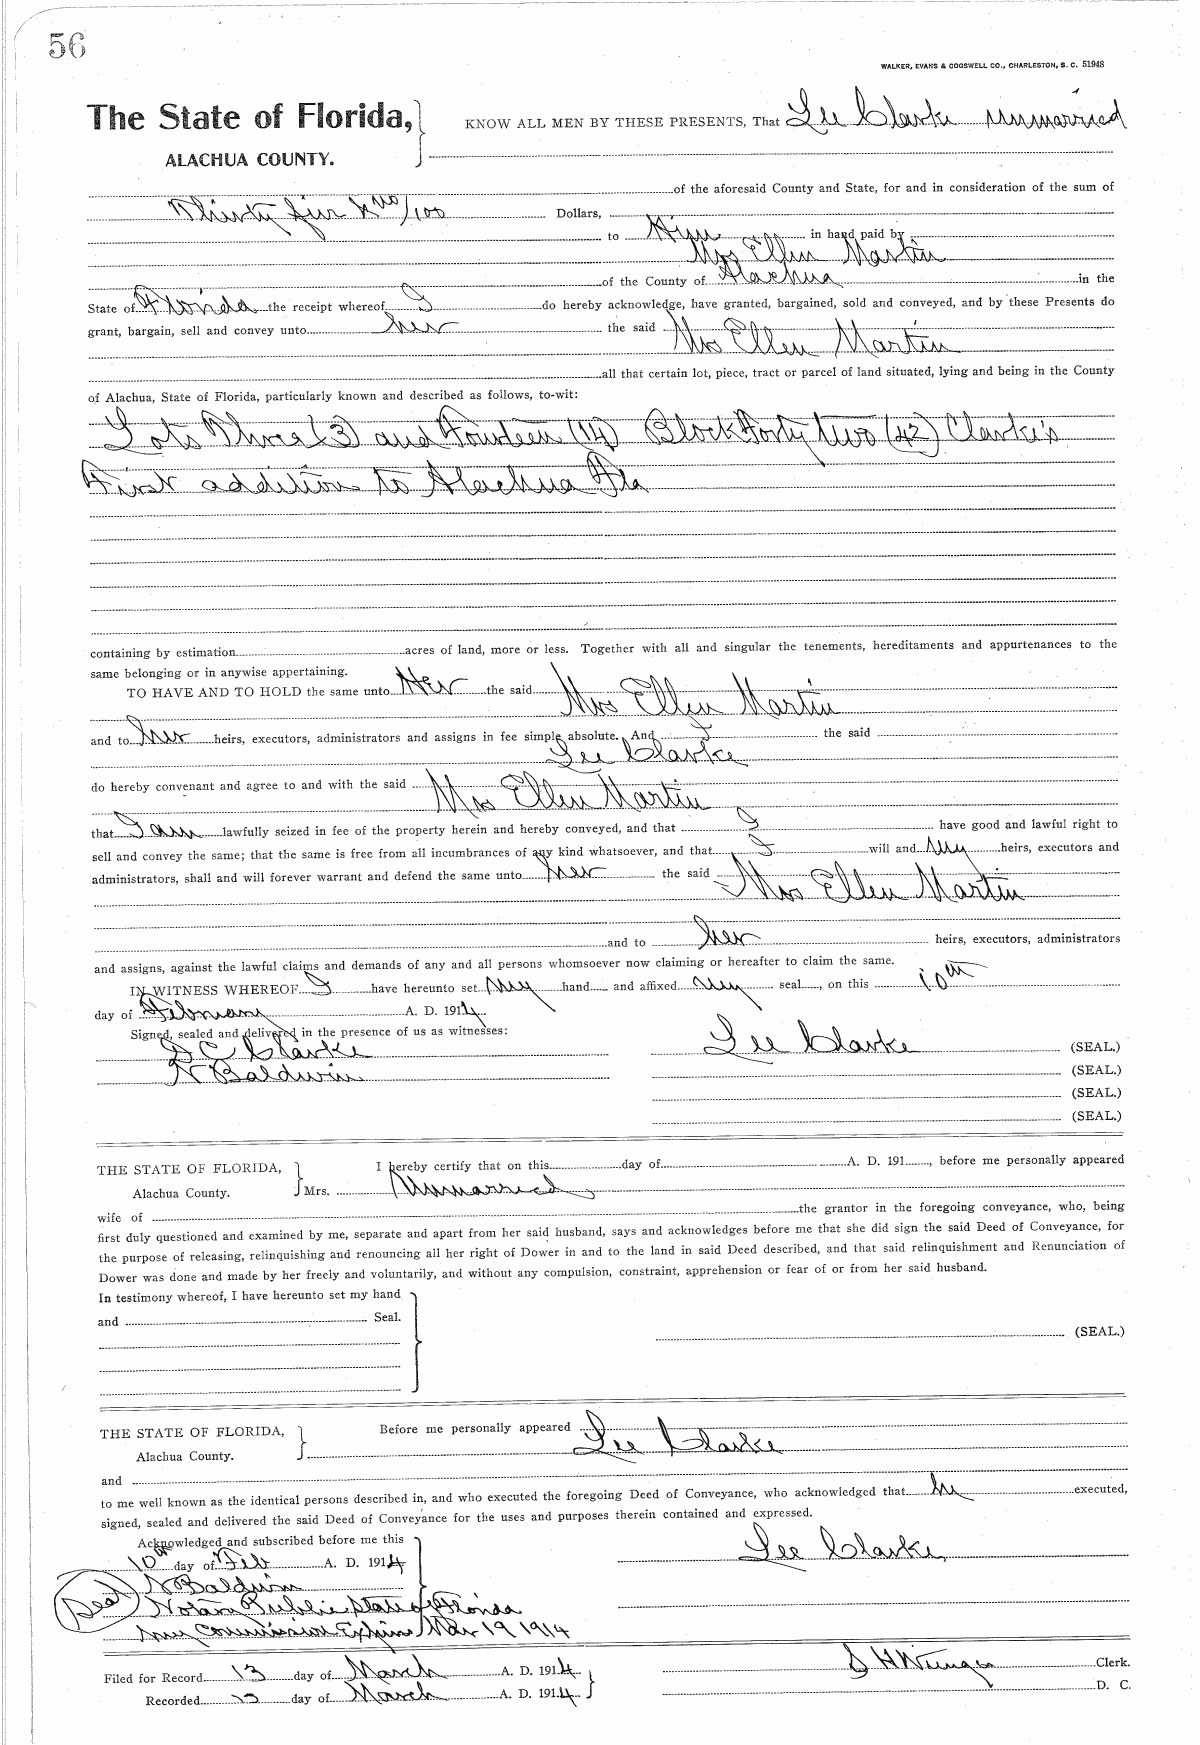 56
WALKER, EVANS & COGSWELL CO., CHARLESTON, S. C. 51948
The State of Florida,
ALACHUA COUNTY.
KNOW ALL MEN BY THESE PRESENTS, That Lee Clarke unmarried
of the aforesaid County and State, for and in consideration of the sum of
Thirty five & no/100 Dollars,
to Him in hand paid by
Mrs Ellen Martin
of the County of Alachua in the
State of Florida the receipt whereof I do hereby acknowledge, have granted, bargained, sold and conveyed, and by these Presents do
grant, bargain, sell and convey unto her the said Mrs Ellen Martin
all that certain lot, piece, tract or parcel of land situated, lying and being in the County
of Alachua, State of Florida, particularly known and described as follows, to-wit:
Lots Three (3) and Fourteen (14) Block Forty two (42) Clarke's
First addition to Alachua Fla
containing by estimation acres of land, more or less. Together with all and singular the tenements, hereditaments and appurtenances to the
same belonging or in anywise appertaining.
TO HAVE AND TO HOLD the same unto Her the said Mrs Ellen Martin
and to her heirs, executors, administrators and assigns in fee simple absolute. And I the said
Lee Clarke
do hereby convenant and agree to and with the said Mrs Ellen Martin
that I am lawfully seized in fee of the property herein and hereby conveyed, and that I have good and lawful right to
sell and convey the same; that the same is free from all incumbrances of any kind whatsoever, and that I will and My heirs, executors and
administrators, shall and will forever warrant and defend the same unto her the said Mrs Ellen Martin
and to her heirs, executors, administrators
and assigns, against the lawful claims and demands of any and all persons whomsoever now claiming or hereafter to claim the same.
IN WITNESS WHEREOF I have hereunto set My hand and affixed My seal, on this 10th
day of February A. D. 1914
Signed, sealed and delivered in the presence of us as witnesses:
D C Clarke
N Baldwin
Lee Clarke (SEAL.)
(SEAL.)
(SEAL.)
(SEAL.)
THE STATE OF FLORIDA,
Alachua County.
I hereby certify that on this day of A. D. 191 , before me personally appeared
Mrs. Unmarried
wife of the grantor in the foregoing conveyance, who, being
first duly questioned and examined by me, separate and apart from her said husband, says and acknowledges before me that she did sign the said Deed of Conveyance, for
the purpose of releasing, relinquishing and renouncing all her right of Dower in and to the land in said Deed described, and that said relinquishment and Renunciation of
Dower was done and made by her freely and voluntarily, and without any compulsion, constraint, apprehension or fear of or from her said husband.
In testimony whereof, I have hereunto set my hand
and Seal.
(SEAL.)
THE STATE OF FLORIDA,
Alachua County.
Before me personally appeared Lee Clarke
and
to me well known as the identical persons described in, and who executed the foregoing Deed of Conveyance, who acknowledged that he executed,
signed, sealed and delivered the said Deed of Conveyance for the uses and purposes therein contained and expressed.
Acknowledged and subscribed before me this
10th day of Feb A. D. 1914
Lee Clarke
N Baldwin
(Seal) Notary Public State of Florida
My Commission Expires Mar 19 1914
Filed for Record 13 day of March A. D. 1914
Recorded 13 day of March A. D. 1914
S H Wienges Clerk.
D. C.